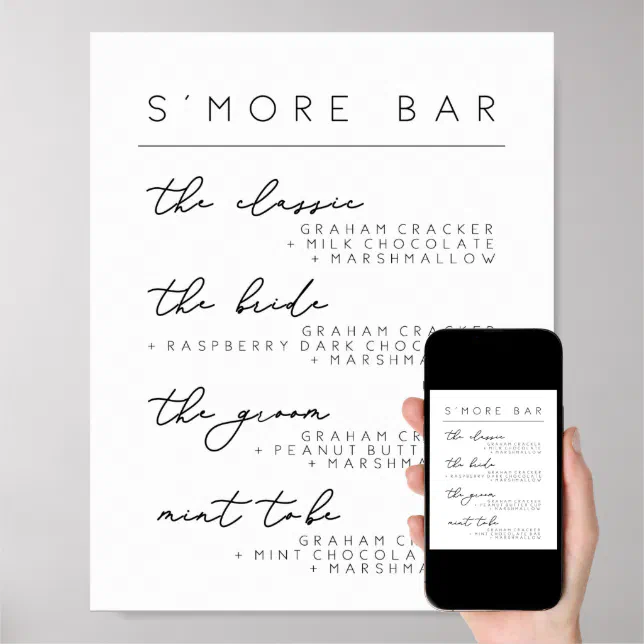 S'MORE BAR
the classic
GRAHAM CRACKER
+ MILK CHOCOLATE
+ MARSHMALLOW
the bride
GRAHAM CRACKER
+ RASPBERRY DARK CHOC
+ MARSHM
the groom
GRAHAM CR
+ PEANUT BUTT
+ MARSHM
mint to be
GRAHAM C
+ MINT CHOCOLA
+ MARSHM
S'MORE BAR
the classic
GRAHAM CRACKER
+ MILK CHOCOLATE
+ MARSHMALLOW
the bride
GRAHAM CRACKER
+ RASPBERRY DARK CHOCOLATE
+ MARSHMALLOW
the groom
GRAHAM CRACKER
+ PEANUT BUTTER CUP
+ MARSHMALLOW
mint to be
GRAHAM CRACKER
+ MINT CHOCOLATE BAR
+ MARSHMALLOW